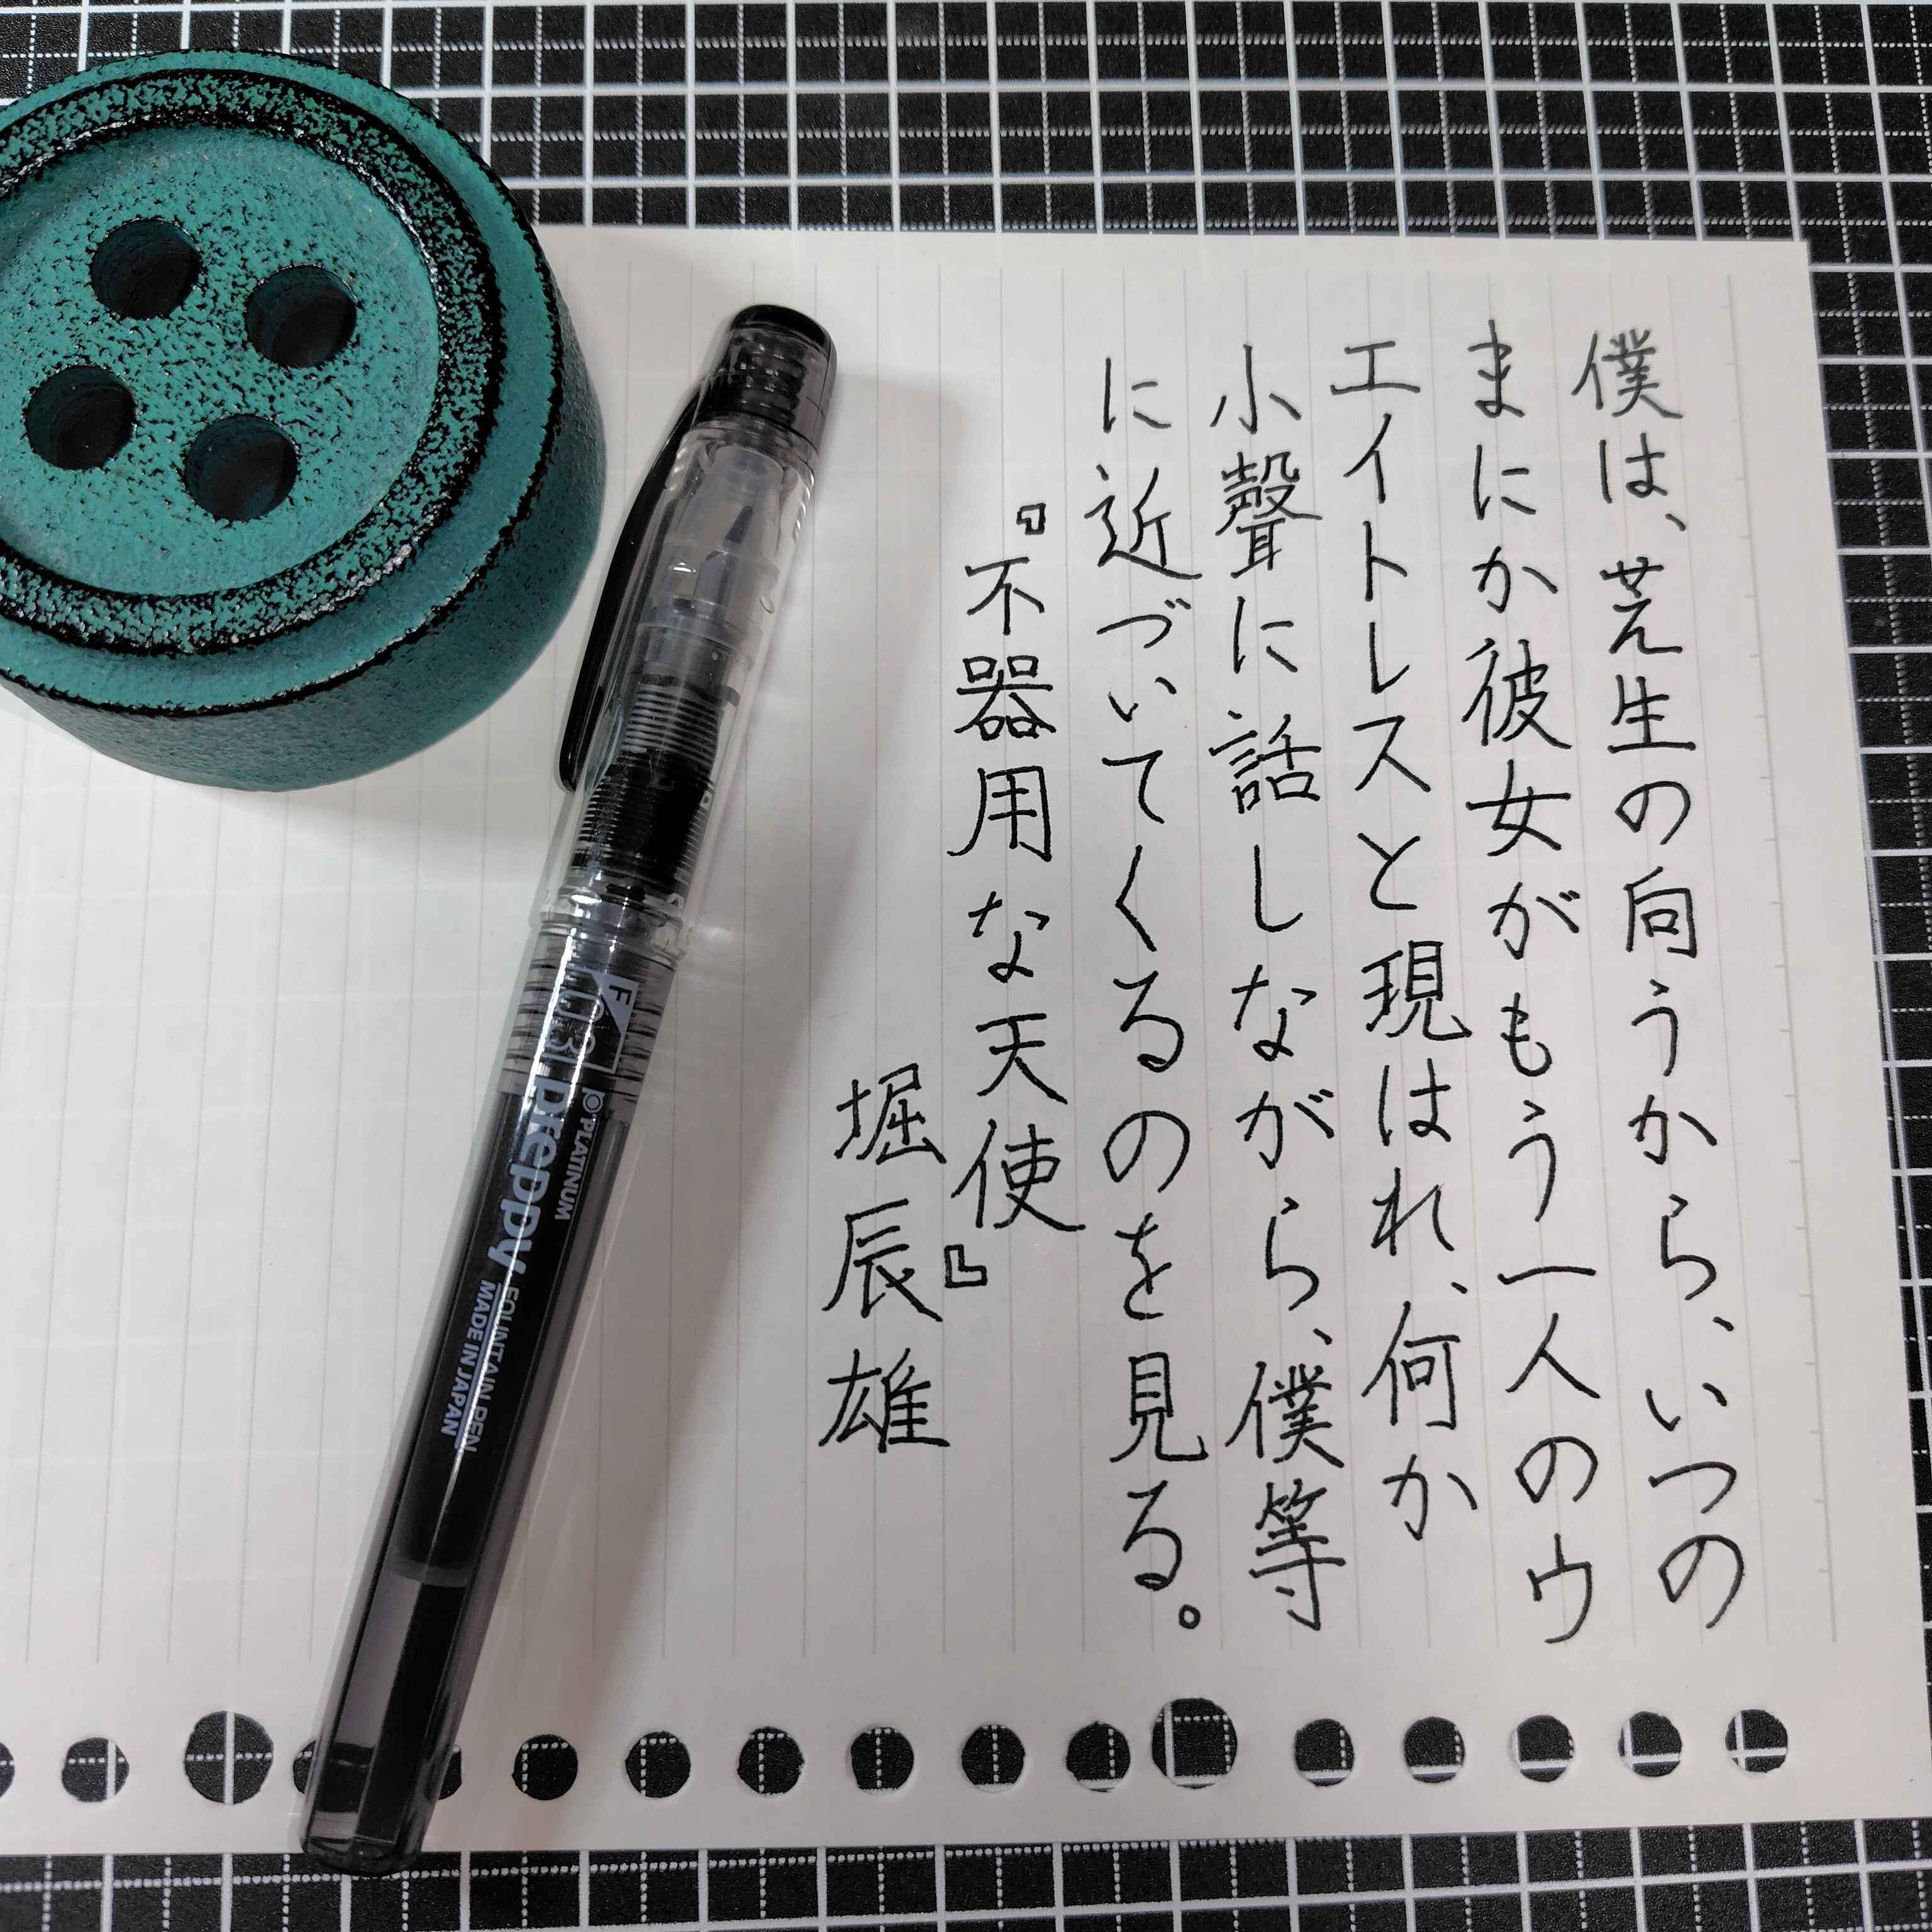 僕は、芝生の向うから、いつの
まにか彼女がもう一人のウ
エイトレスと現はれ、何か
小聲に話しながら、僕等
に近づいてくるのを見る。
『不器用な天使』
堀辰雄
F
03 preppy
PLATINUM
FOUNTAIN PEN
MADE IN JAPAN